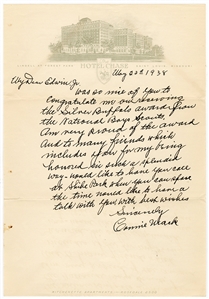 HOTEL CHASE
Aug 22nd 1938
My Dear Edwin Jr.
Was so nice of you to
Congratulate me on receiving
the Silver Buffalo award from
the National Boys Scouts,
Am very proud of the award
And to many friends which
includes you for my being
honored in such a splendid
way - would like to have you call
at Shibe Park when you can spare
the time would like to have a
talk with you, with best wishes
Sincerely
Connie Mack